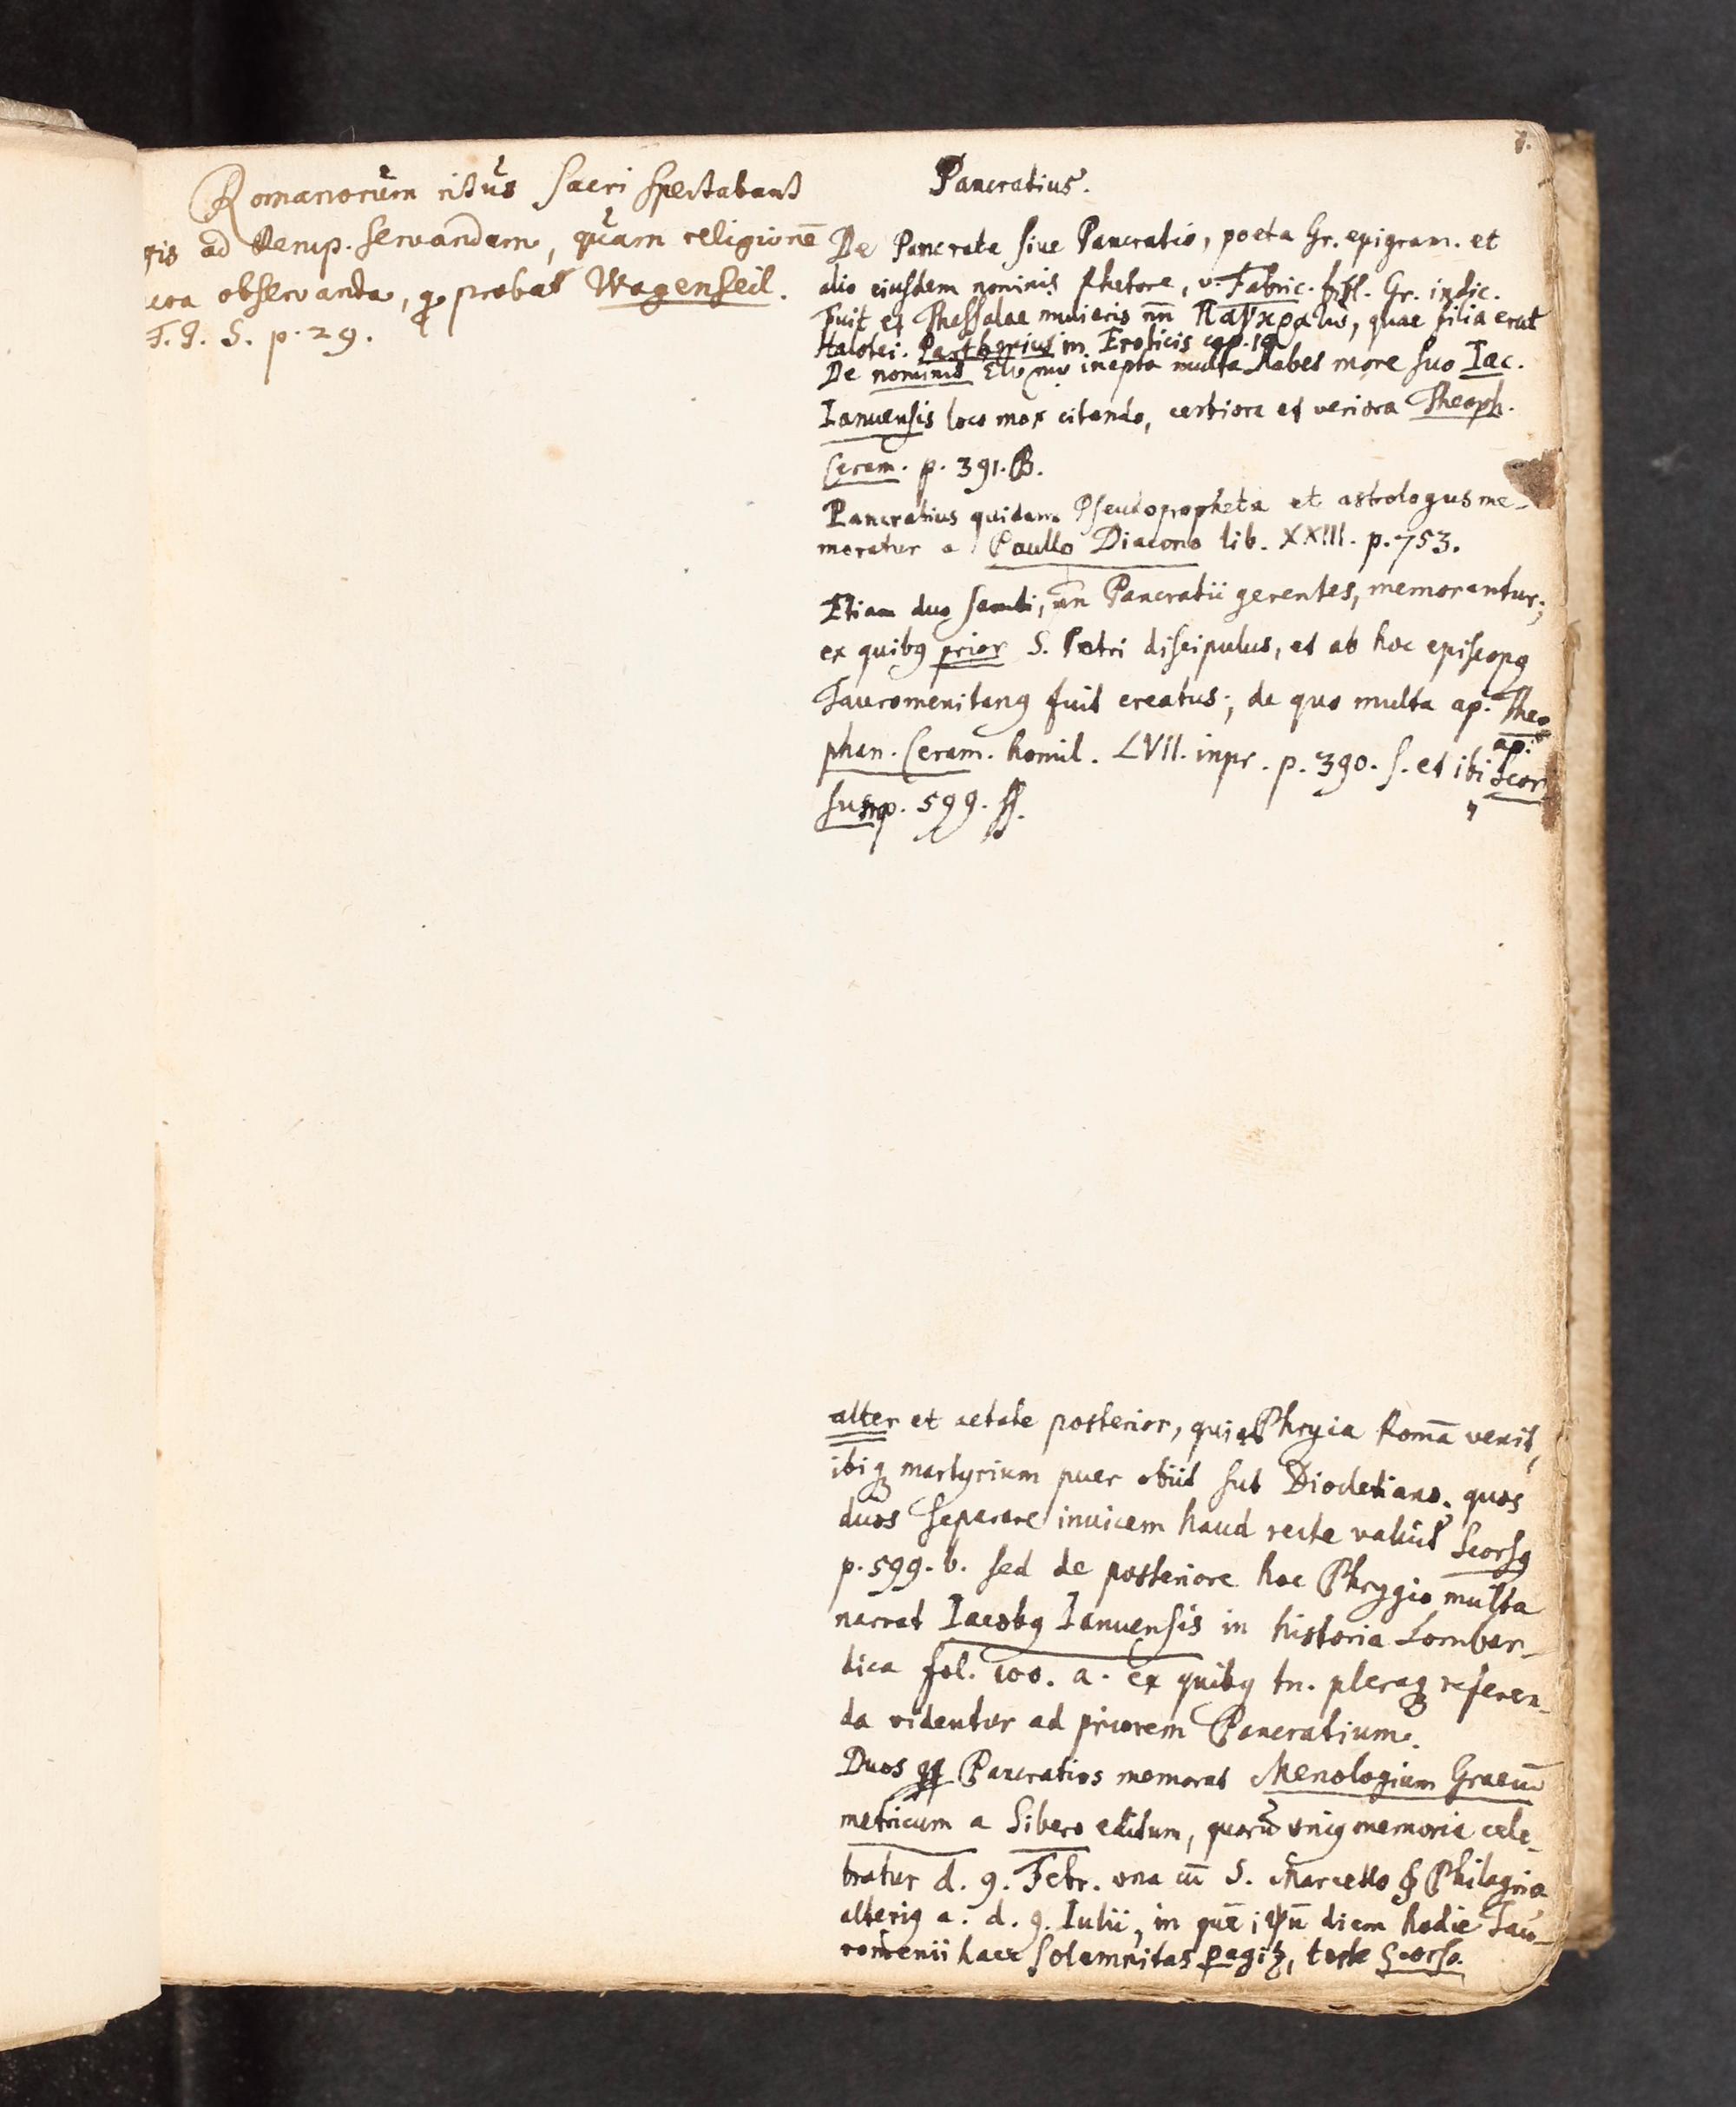 Romanorum ritus sacri spectabant
gis ad Remp. servandam, quam religionē
observanda, probat Wagenseil.
T. I. S. p. 29.
Pancratius.
De Pancrate sive Pancratio, poeta Gr. epigram. et
alio eiusdem nominis Rhetore, v. Fabric. Gr. indic.
Fuit et Thessalae mulieris nn̄ quae filia erat
Parthenius in Eroticis cap. 19
De nominis inepta multa habes more suo Iac.
Ianuensis loco mox citando, certiora et veriora Theoph.
Ceram. p. 391. B.
Pancratius quidam Pseudopropheta et astrologus me-
moratur a Paullo Diacono lib. XXIII. p. 753.
Etiam duo sancti, nn̄ Pancratii gerentes, memorantur;
ex quibꝰ prior S. Petri discipulus, et ab hoc episcopꝰ
Tauromenitanꝰ fuit creatus; de quo multa ap. Theo
phan. Ceram. homil. LVII. inpr. p. 390. s. et ibi ap. Scor
sum p. 599. ss.
alter et aetate posterior, qui ab Phrygia Romā venit,
ibiq; martyrium puer obiit sub Diocletiano. quos
duos separare invicem haud recte valuit Scorsꝰ
p. 599. b. sed de posteriore hoc Phrygio multa
narrat Iacobꝰ Ianuensis in historia Lombar-
dica fol. 100. a. ex quibꝰ tn. pleraq; referen-
da videntur ad priorem Pancratium.
Duos Pancratios memorat Menologium Graecū
metricum a Sibero editum, quorū vniꝰ memoria cele-
bratur d. 9. Febr. vna cū S. Marcello & Philagrio
alteriꝰ a. d. 9. Iulii, in quē ipsū diem hodie Tau-
romenii haec solemnitas teste Scorso.